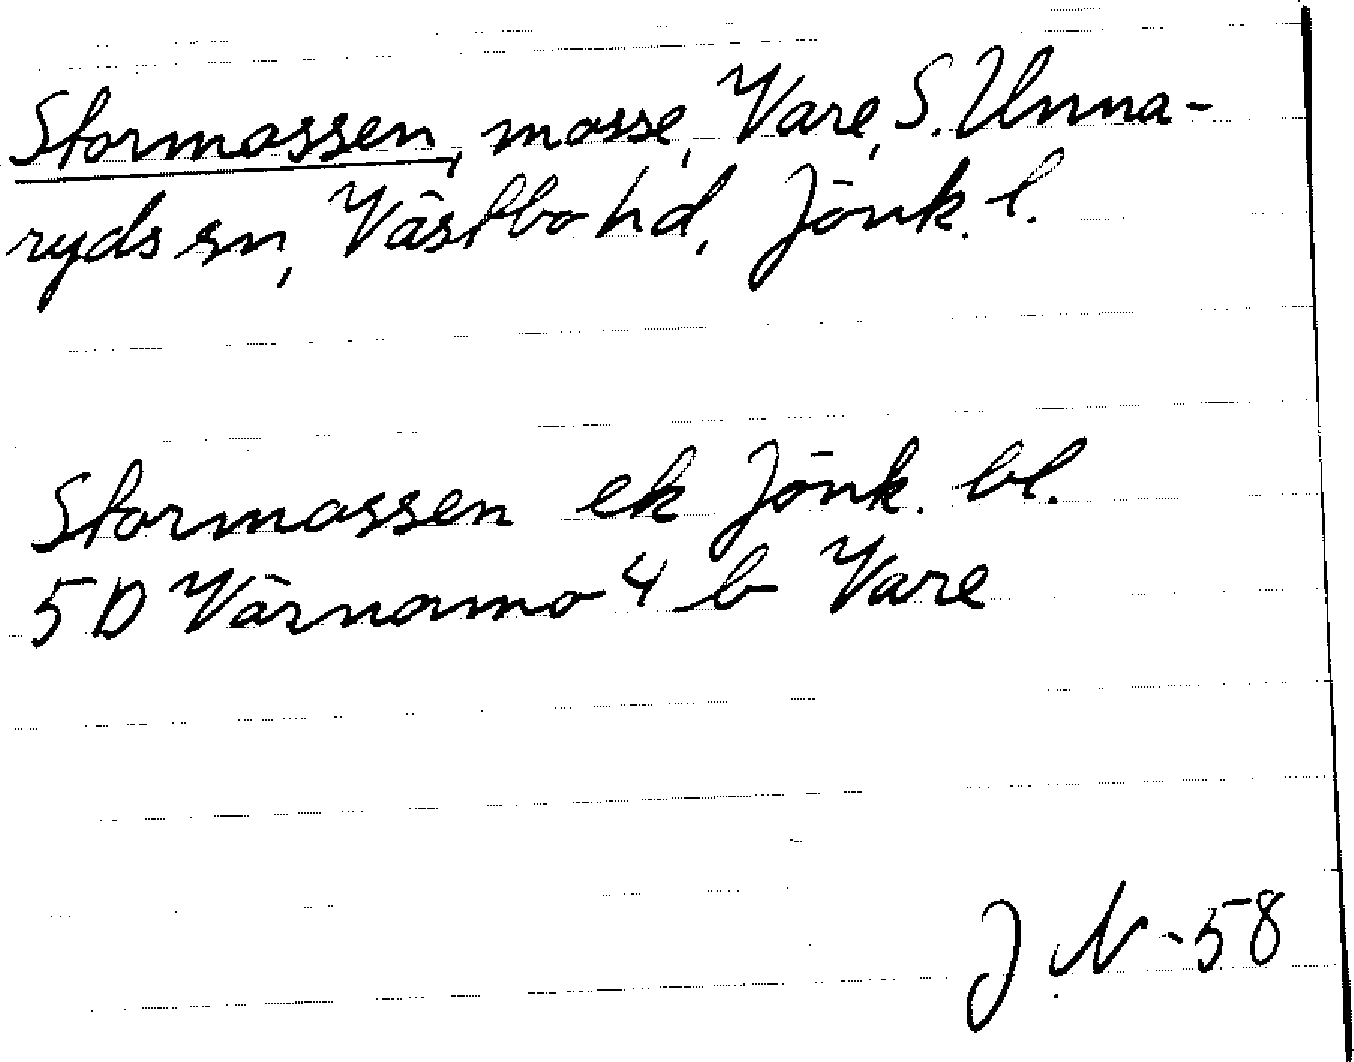 Stormossen, mosse, Vare, S. Unna-
ryds sn, Västbo hd, Jönk. l.
Stormossen ek Jönk. bl.
5D Värnamo 4 b Vare
J. N -58